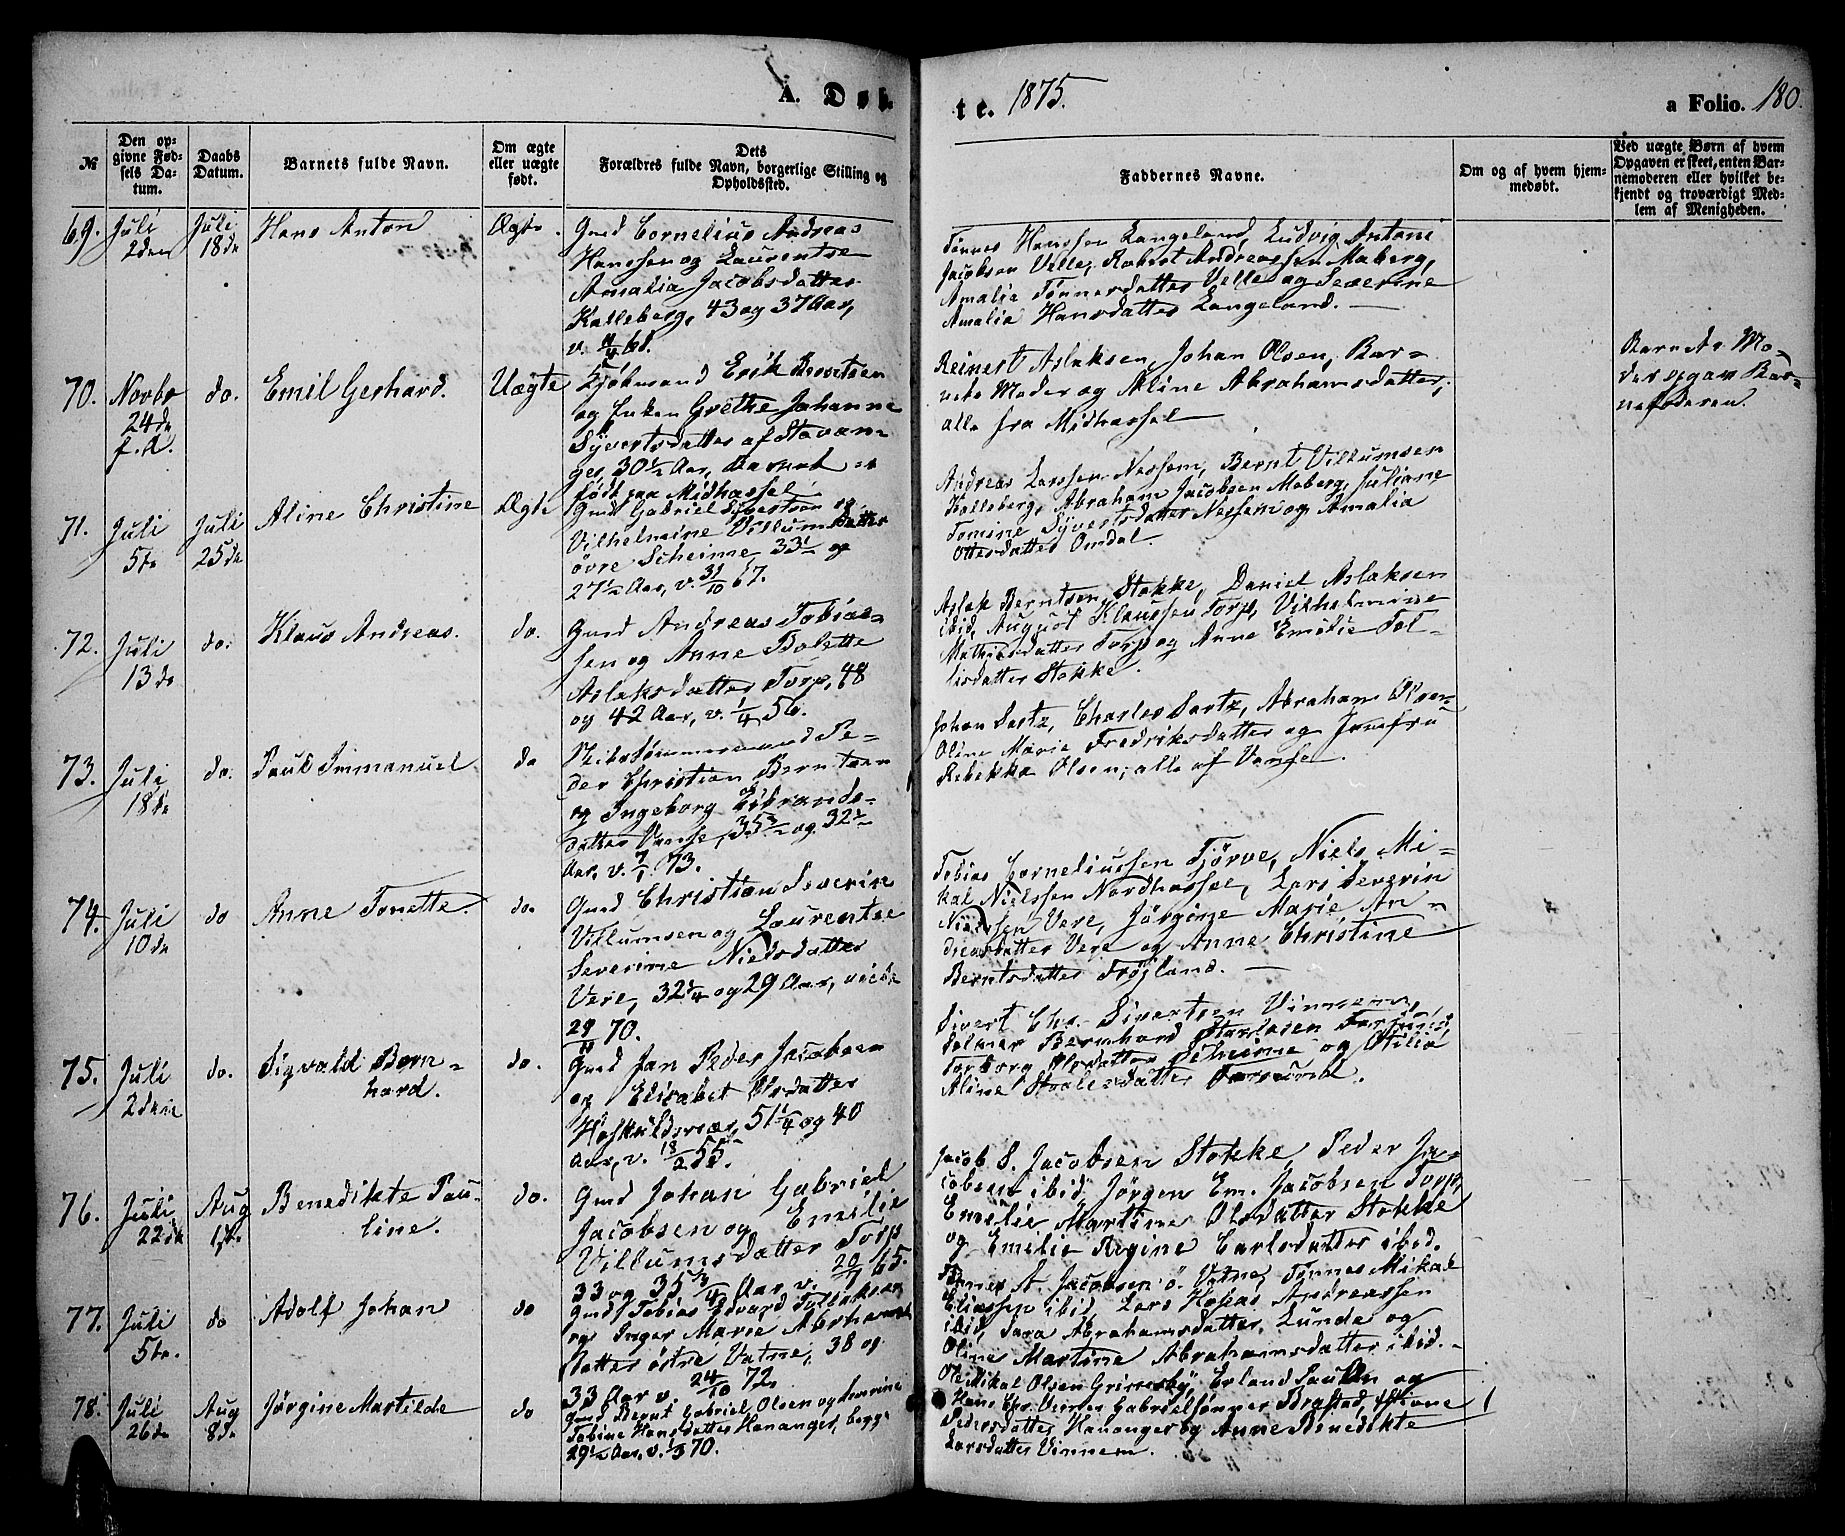 A. Døb-
te. 1875.
a Folio. 180.
№
Den op-
givne Fød-
sels Da-
tum.
Daabs
Datum.
Barnets fulde Navn.
Om ægte
eller uægte
født.
Dets
Forældres fulde Navn, borgerlige Stilling og
Opholdssted.
Faddernes Navne.
Om og af hvem hjem-
medøbt.
Ved uægte Børn af hvem
Opgaven er skeet, enten Bar-
nemoderen eller hvilket be-
kjendt og troværdigt Med-
lem af Menigheden.
69.
Juli
2den
Juli
18de
Hans Anton
Ægte.
Gmd Cornelius Andreas
Hanssen og Laurentse
Amalia Jacobsdatter
Kalleberg, 43 og 37 Aar,
Tønnes Hanssen Langeland, Ludvig Antoni
Jacobsen Velle, Robert Andreassen Maberg,
Amalie Tønnesdatter Velle og Severine
Amalia Hansdatter Langeland.
70.
Novbr
24de
f. A.
do.
Emil Gerhard.
Uægte
Kjøbmand Erik Berntsen
og Enken Grethe Johanne
Syvertsdatter af Stavan-
ger, 30½ Aar, Barnet er
født paa Midhassel
Reinert Aslaksen, Johan Olsen, Bar-
nets Moder og Aline Abrahamsdatter,
alle fra Midhassel
Barnets Mo-
der opgav Bar-
nefaderen.
71.
Juli
5te
Juli
25de
Aline Christine
Ægte
Gmd Gabriel Sivertsen og
Vilhelmine Villumsdatter
øvre Skeime, 33½ og
27½ Aar, v. 31/10 67.
Andreas Larssen Nessem, Bernt Villumsen
Kalleberg, Abraham Jacobsen Maberg, Juliane
Tomine Syvertsdatter Nessem og Amalia
Ottesdatter Omdal.
72.
Juli
13de
do.
Klaus Andreas.
do.
Gmd Andreas Tobias-
sen og Anne Bolette
Aslaksdatter Torp, 48
og 42 Aar, v. 1/4 56.
Aslak Berntsen Stokke, Daniel Aslaksen
ibid, August Klaussen Torp, Vilhelmine
Mathiasdatter Torp og Anne Emilie Tol-
lisdatter Stokke.
73.
Juli
18de
do.
Paul Immanuel
do
Skibstømmermand Pe-
der Christian Berntsen
og Ingeborg Gibrands-
datter Vanse, 35¾ og 32½
Aar, v. 7/1 73.
Johan Sartz, Charles Sartz, Abraham Olsen,
Oline Marie Fredriksdatter og Jomfru
Rebekka Olsen, alle af Vanse.
74.
Juli
10de
do
Anne Tonette.
do.
Gmd Christian Severin
Villumsen og Laurentse
Severine Nielsdatter
Vere, 32¼ og 29 Aar, viede
70.
Tobias Corneliussen Tjørve, Niels Mi-
kal Nielssen Nordhassel, Lars Severin
Nielssen Vere, Jørgine Marie An-
dreasdatter Vere og Anne Christine
Berntsdatter Frøjland.
75.
Juli
2den
do.
Sigvald Bern-
hard.
do.
Gmd Jan Peder Jacobsen
og Elisabet Olsdatter
51¼ og 40
Aar, v. 18/2 55.
Sivert Chr. Sivertsen Vinnem,
Bernhard
Torborg Olsdatter Skeime og Otilia
Aline Staalesdatter Farsund.
76.
Juli
22de
Aug
1ste
Benedikte Pau-
line.
do.
Gmd Johan Gabriel
Jacobsen og Emilie
Villumsdatter Torp
33 og 35¾ Aar v. 20/1 65.
Jacob S. Jacobsen Stokke, Peder Ja-
cobsen ibid, Jørgen Em. Jacobsen Torp,
Emelie Martine Olsdatter Stokke
og Emilie Regine Carlsdatter ibid.
77.
Juli
5te.
do
Adolf Johan
do
Gmd Tobias Edvard Tollaksen
og Inger Marie Abrahams-
datter østre Vatne, 38 og
33 Aar v. 24/10 72.
Tønnes A. Jacobsen ø. Vatne, Tønnes Mikal
Eliassen ibid, Lars Hosias Andreassen
ibid, Sara Abrahamsdatter Lunde og
Oline Martine Abrahamsdatter ibid.
78.
Juli
26de
Aug
8de
Jørgine Martilde
do
Gmd Bernt Gabriel Olsen og
Tobine Hansdatter Hananger, begge
29½ Aar, v. 70.
Ole Mikal Olsen Grimsby, Erland Paulsen og
Hans Chr. Verner Gabrielsønner Brastad,
Pedersdatter Hananger og Anne Benedikte
Larsdatter Vinnem.